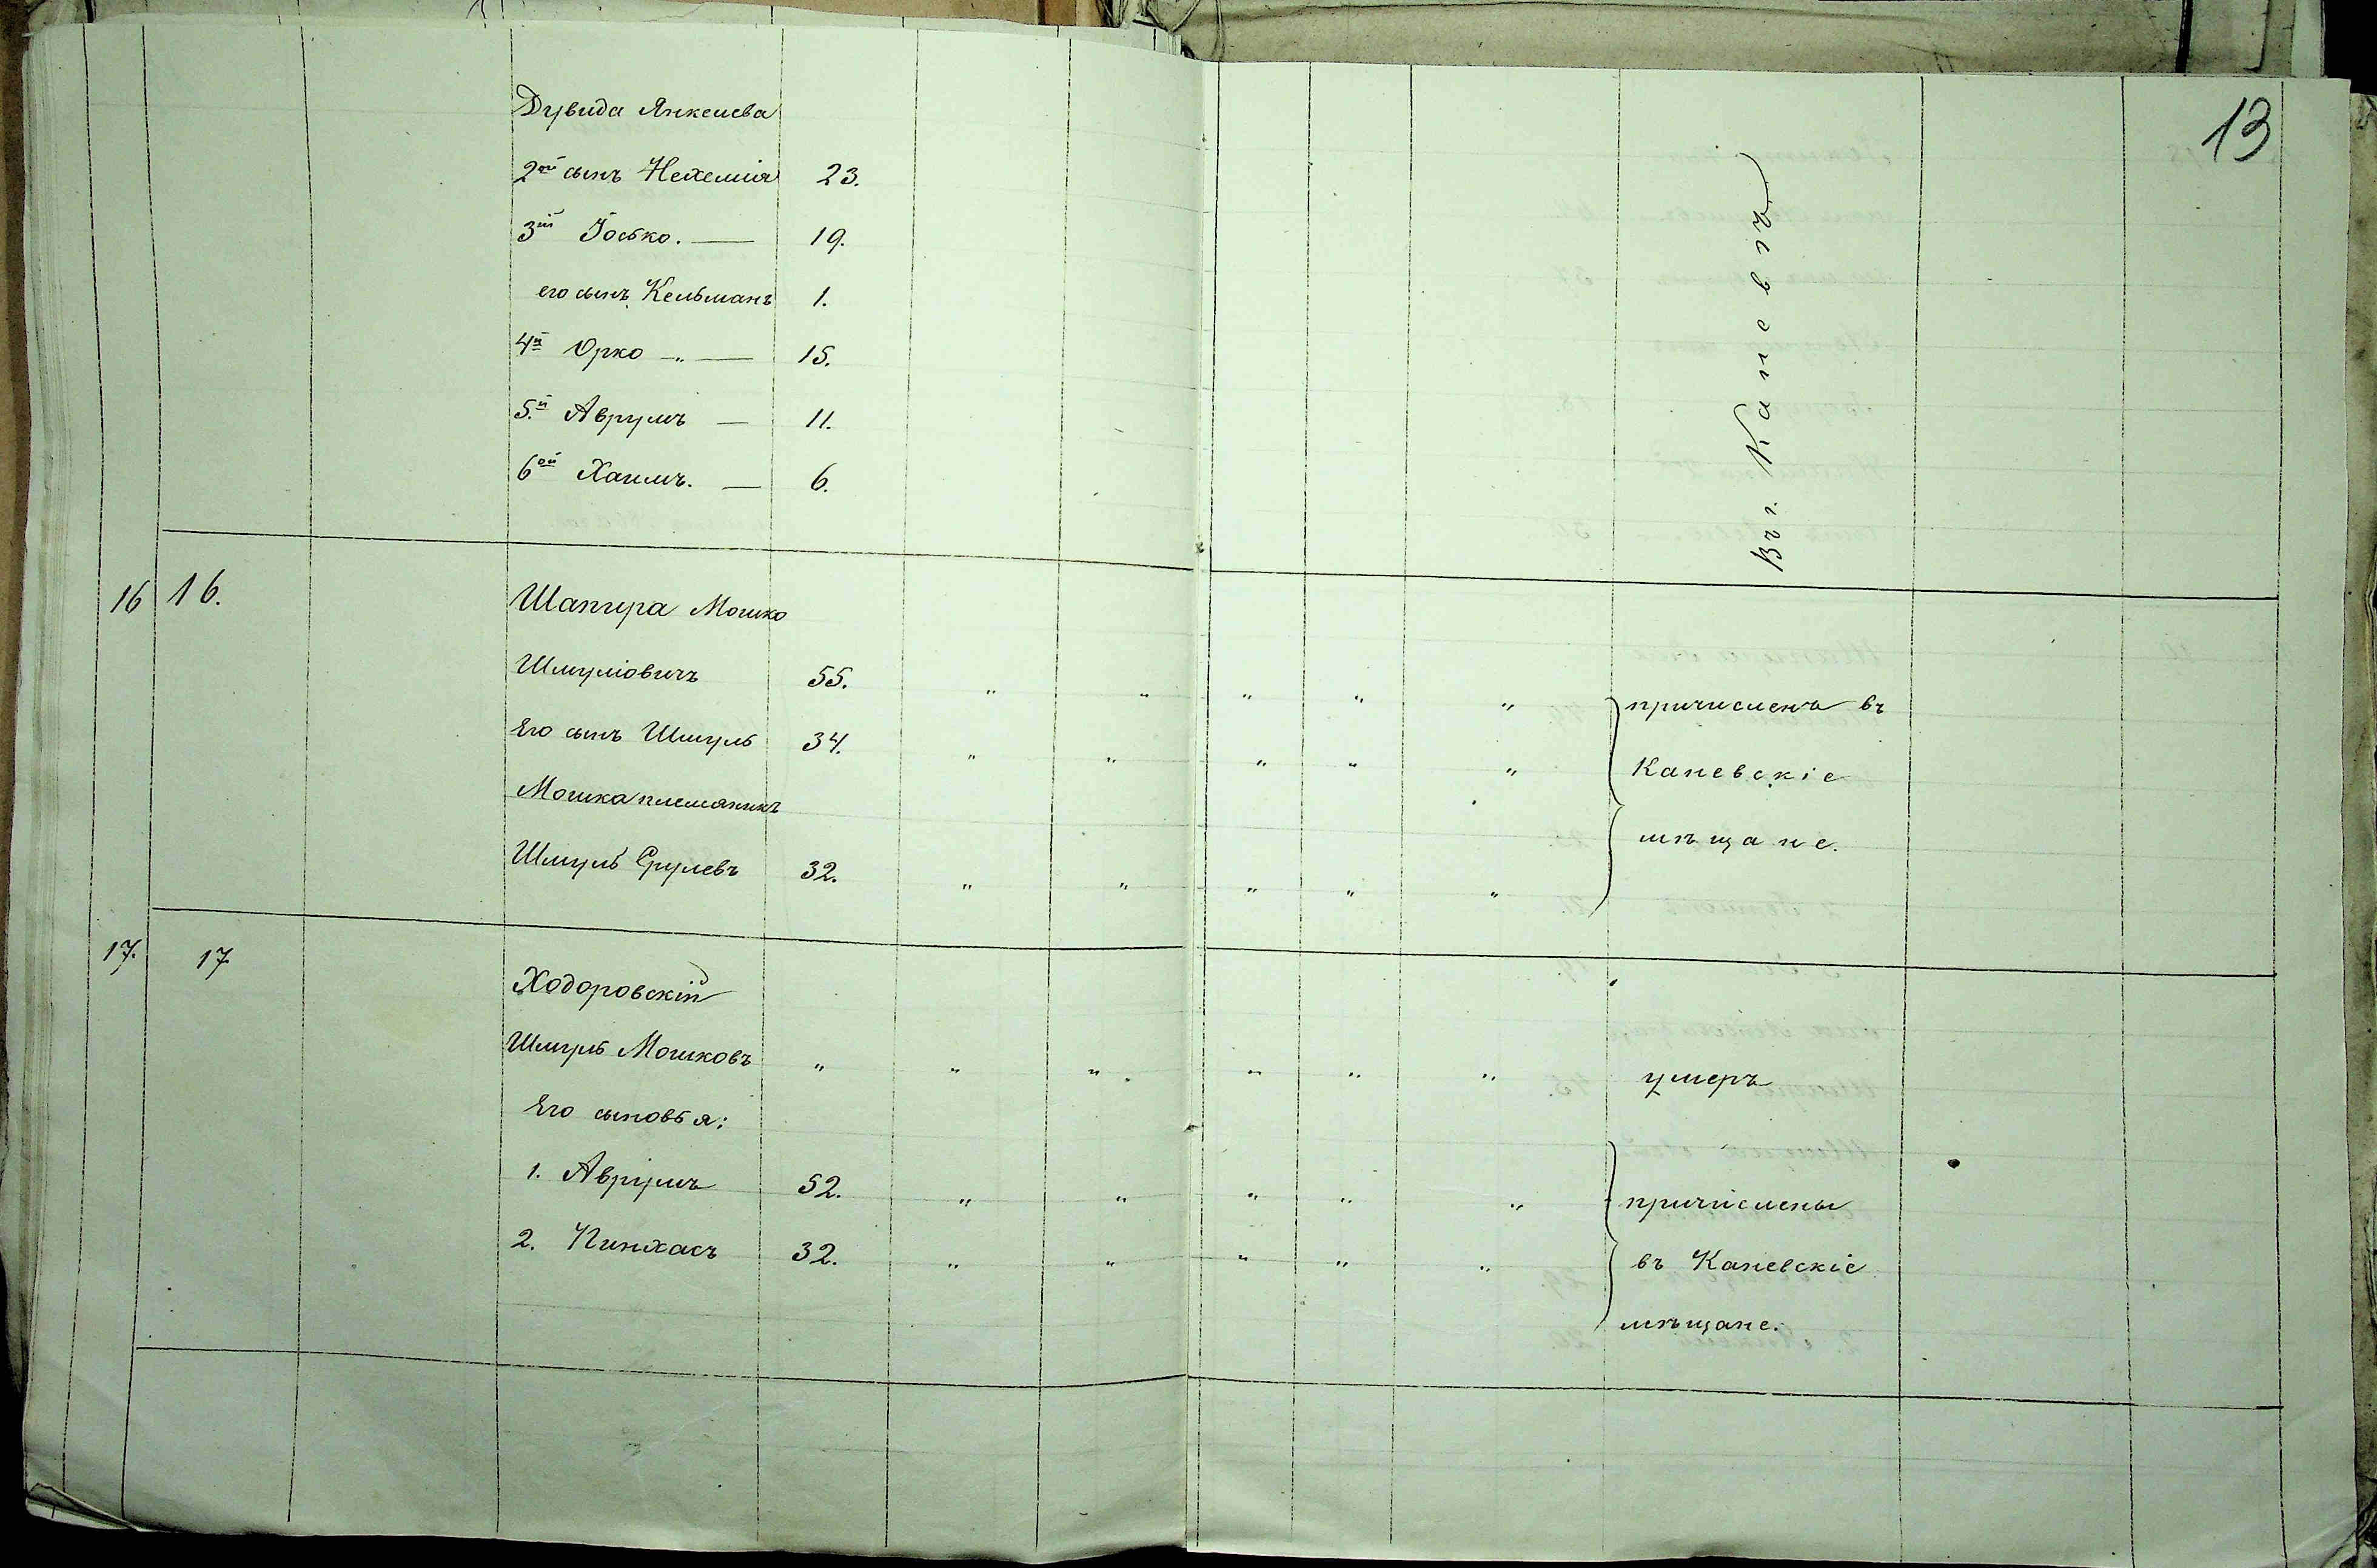 13
Дувида Янкелева
2й сынъ Нехемія 23.
3й Іосько. — 19.
его сынъ Кельманъ 1.
4й Орко —„— 15.
5.й Аврумъ — 11.
6ой Хаимъ. — 6.
Въ г. Каневѣ
16 16. Шапира Мошко
Шмуліовичъ 55. „ „ „ „ „ причислены въ
Его сынъ Шмуль 34. „ „ „ „ „ Каневскіе
Мошка племянникъ
мѣщане.
Шмуль Срулевъ 32. „ „ „ „ „
17. 17 Ходоровскій
Шмуль Мошковъ „ „ „ „ „ „ умеръ
Его сыновья:
1. Аврумъ 52. „ „ „ „ „ причислены
2. Пинхасъ 32. „ „ „ „ „ въ Каневскіе
мѣщане.